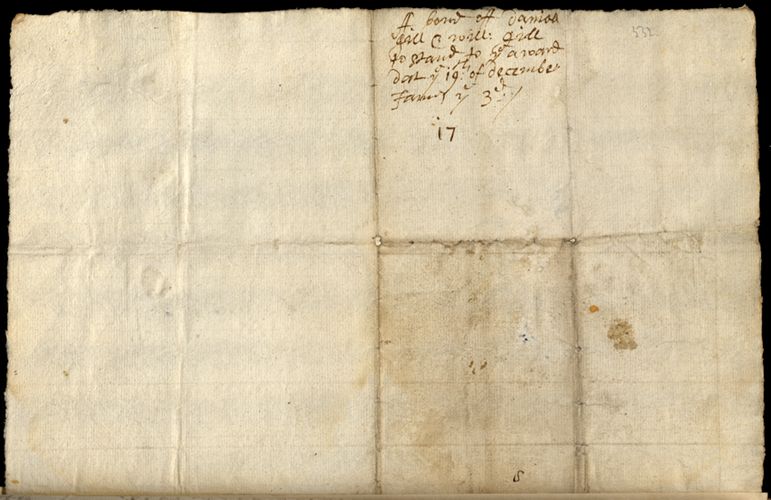 A bond off Daniell 532
Gill & Will: Gill
to stand to ye award
dat ye 19th of december
James ye 3d
17
8